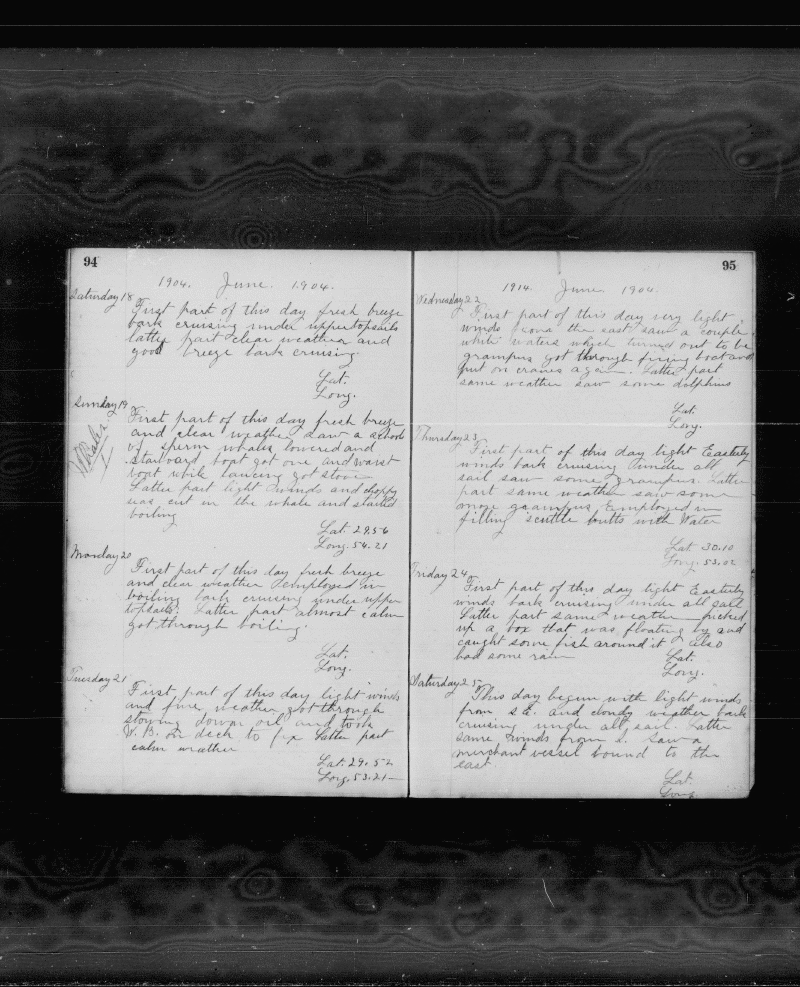 94
1904. June. 1904.
Saturday 18
First part of this day fresh breeze
bark cruising under uppertopsails
latty part clear weather and
good breeze bark cruising.
Lat.
Long.
Sunday 19
First part of this day fresh breeze
and clear weather saw a school
of sperm whales lowered and
starboard boat got one and waist
boat while lancing got stove
Latter part light winds and choppy
seas cut in the whale and started
boiling
Whales
I
Lat. 29.56
Long. 54.21
Monday 20
First part of this day fresh breeze
and clear weather employed in
boiling bark cruising under upper
topsails. Latter part almost calm
got through boiling.
Lat.
Long.
Tuesday 21
First part of this day light winds
and fine weather got through
stowing down oil and took
W. B. on deck to fix Latter part
calm weather
Lat. 29.52
Long. 53.21
95
1914. June. 1904.
Wednesday 22
First part of this day very light
winds from the east saw a couple
white waters which turned out to be
grampus got through fixing boat and
put on cranes again. Latter part
same weather saw some dolphins
Lat.
Long.
Thursday 23
First part of this day light Easterly
winds bark cruising under all
sail saw some grampus. Latter
part same weather saw some
more grampus Employed in
filling scuttle butts with Water
Lat 30.10
Long. 53.02
Friday 24
First part of this day light Easterly
winds bark cruising under all sail
Latter part same weather picked
up a box that was floating by and
caught some fish around it also
had some rain
Lat.
Long.
Saturday 25
This day begun with light winds
from S.E. and cloudy weather bark
cruising under all sail. Latter
same winds from S. Saw a
merchant vessel bound to the
east
Lat.
Long.